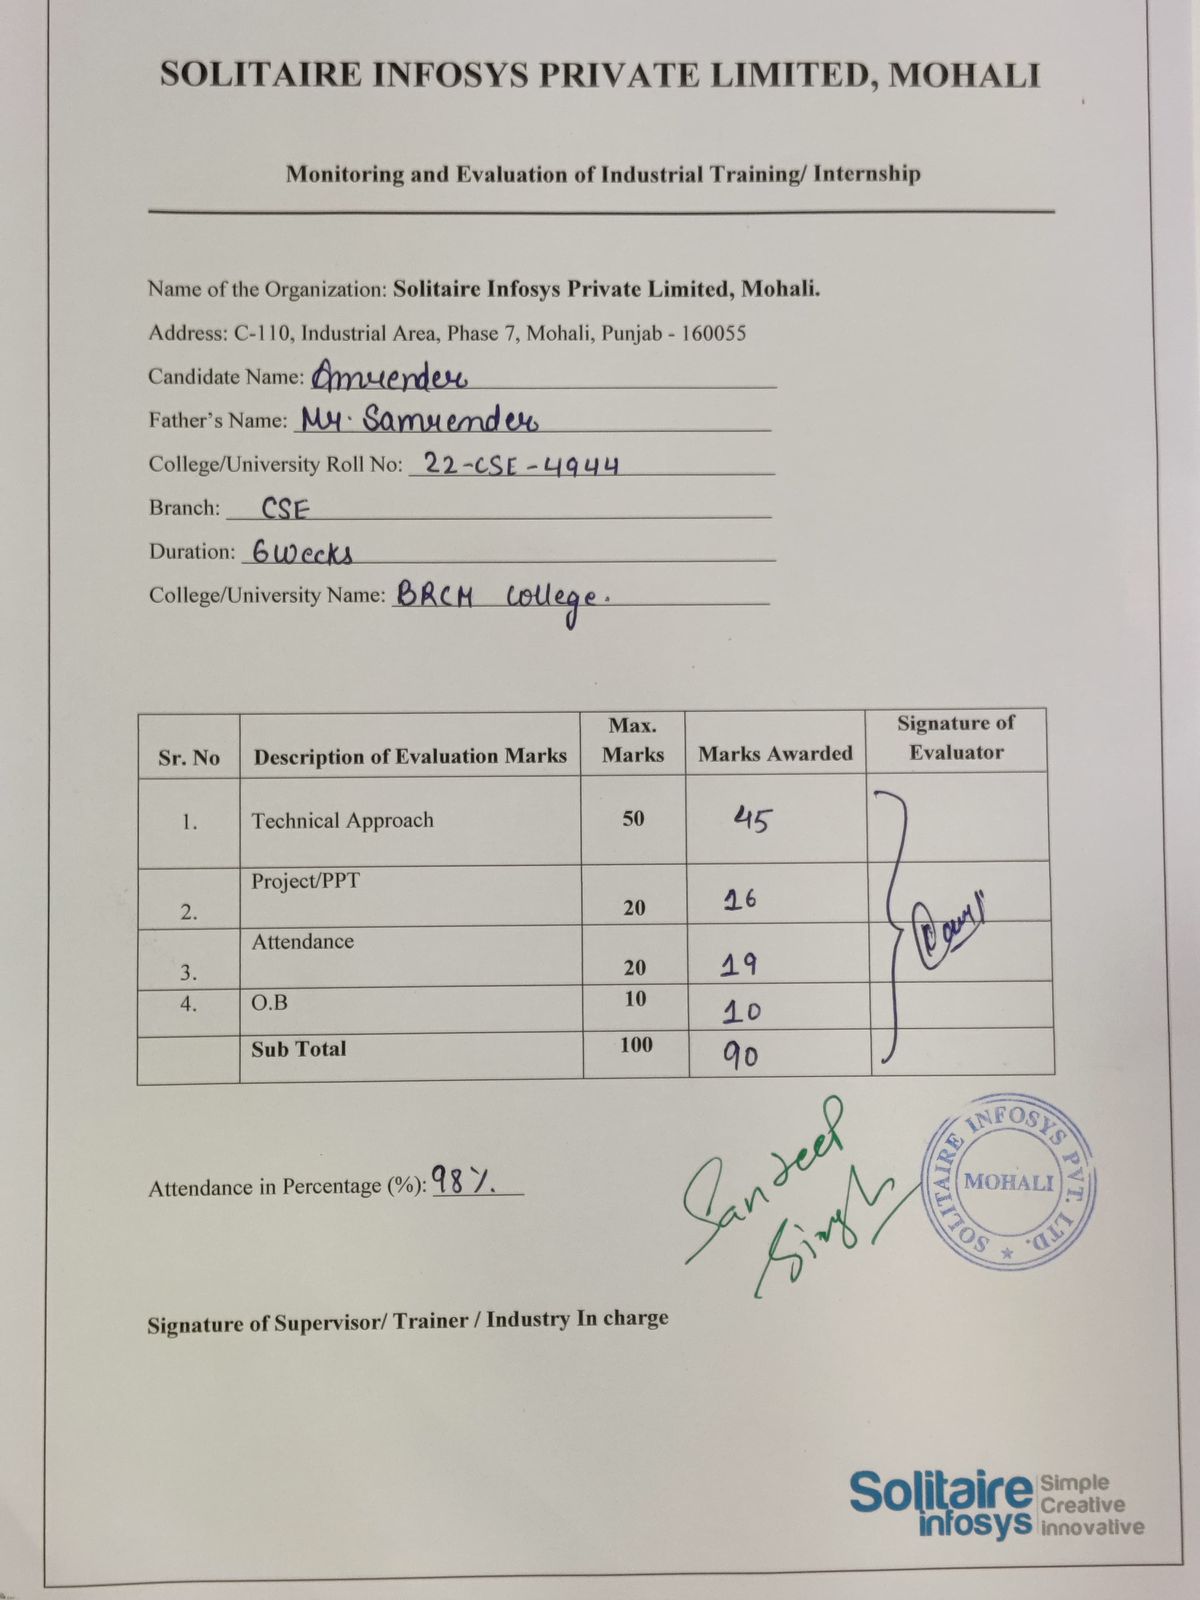 SOLITAIRE INFOSYS PRIVATE LIMITED, MOHALI
Monitoring and Evaluation of Industrial Training/ Internship
Name of the Organization: Solitaire Infosys Private Limited, Mohali.
Address: C-110, Industrial Area, Phase 7, Mohali, Punjab - 160055
Candidate Name: Amrender
Father's Name: Mr. Samrender
College/University Roll No: 22-CSE-4944
Branch: CSE
Duration: 6 Weeks
College/University Name: BRCM College.
Sr. No Description of Evaluation Marks Max. Marks Marks Awarded Signature of Evaluator
1. Technical Approach 50 45
2. Project/PPT 20 16
3. Attendance 20 19
4. O.B 10 10
Sub Total 100 90
Attendance in Percentage (%): 98%.
Sandeep
Singh
SOLITAIRE INFOSYS PVT. LTD.
MOHALI
Signature of Supervisor/ Trainer / Industry In charge
Solitaire infosys
Simple
Creative
innovative